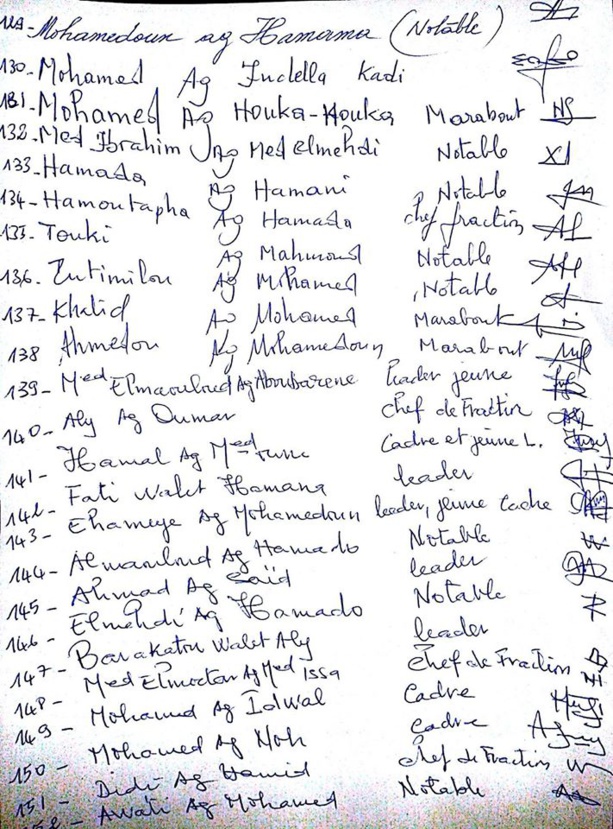 129- Mohamedoun ag Hamama (Notable)
130- Mohamed Ag Indella Kadi
131- Mohamed Ag Houka-Houka Marabout
132- Med Ibrahim Ag Med elmehdi Notable
133- Hamada Ag Hamani Notable
134- Hamoutapha Ag Hamada chef fraction
135- Touki Ag Mahmoud Notable
136- Intimilou Ag Mohamed Notable
137- Khalid Ag Mohamed Marabout
138 Ahmedou Ag Mohamedoun Marabout
139- Med Elmaouloud Ag Aboubarene leader jeune
140- Aly Ag Oumar chef de Fraction
141- Hamal Ag Med Cadre et jeune L.
142- Fati Walet Hamana leader
143- Ehameye Ag Mohamedoun leader, jeune cadre
144- Almaouloud Ag Hamado Notable
145- Ahmad Ag Saïd leader
146- Elmehdi Ag Hamado Notable
147- Barakatou Walet Aly leader
148- Med Elmoctar Ag Med Issa chef de Fraction
149- Mohamed Ag Idwal Cadre
150- Mohamed Ag Noh cadre
151- Didi Ag Hamid chef de Fraction
Awati Ag Mohamed Notable